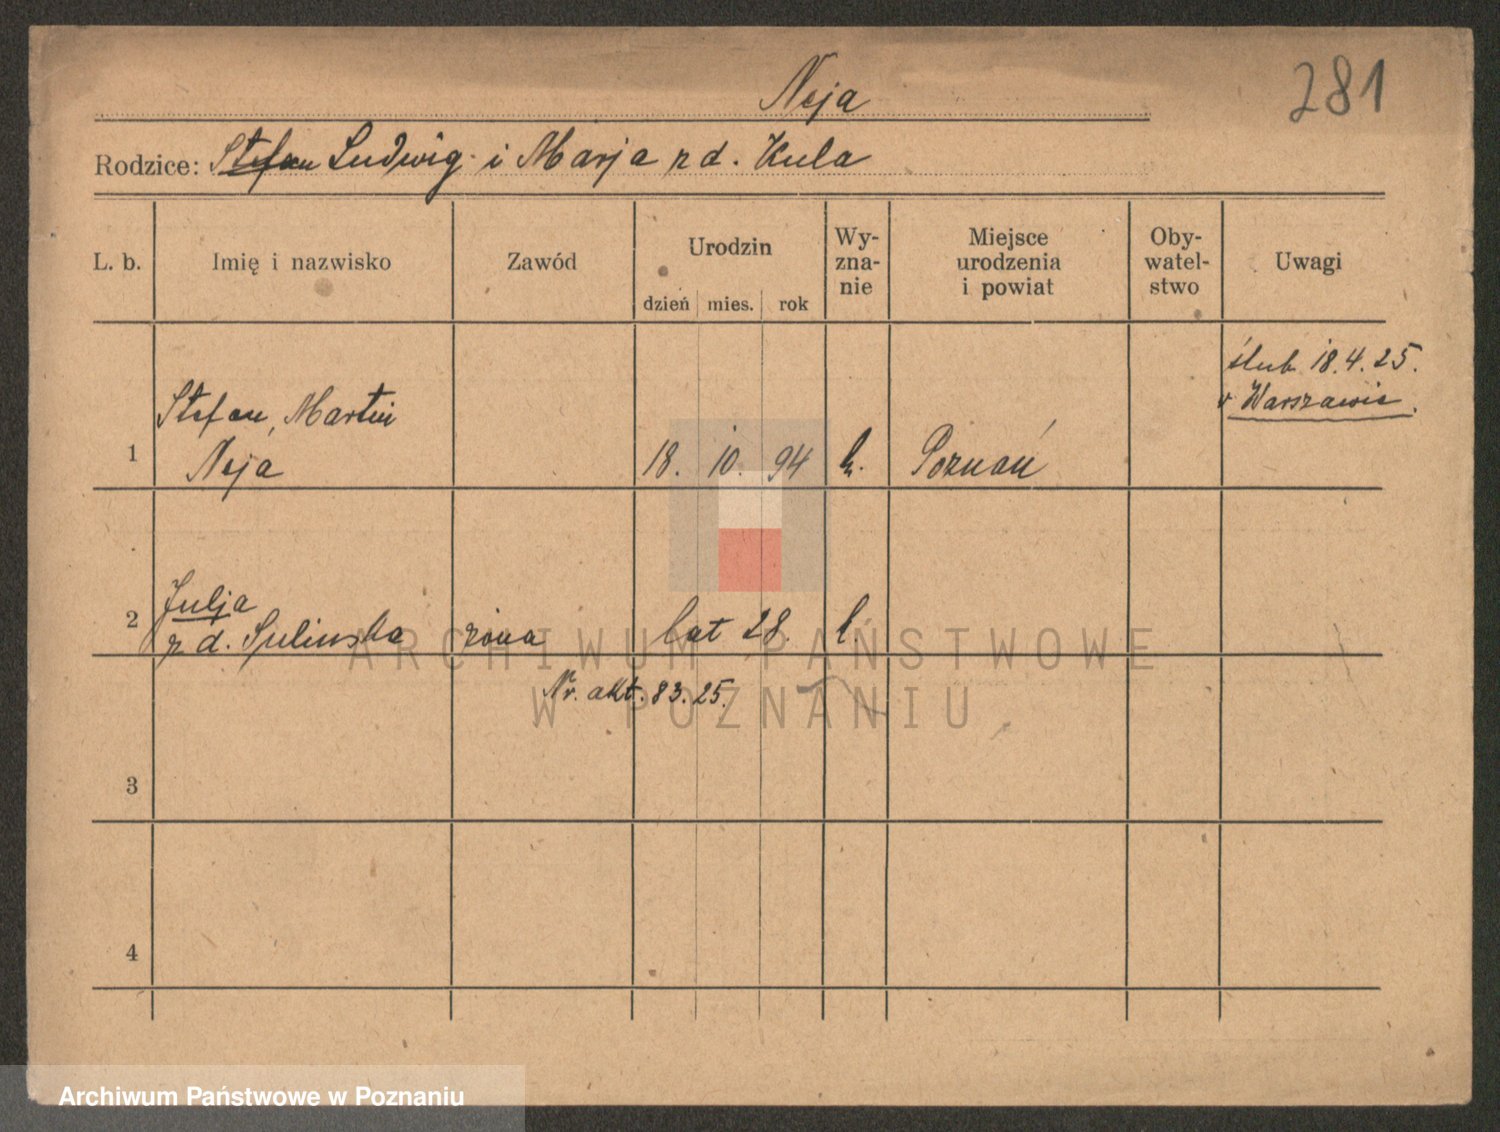 Neja
281
Rodzice: Stefan Ludwig i Marja zd. Kula
L. b.
Imię i nazwisko
Zawód
Urodzin
dzień mies. rok
Wy-
zna-
nie
Miejsce
urodzenia
i powiat
Oby-
watel-
stwo
Uwagi
ślub 18.4.25.
w Warszawie.
Stefan, Martin
1 Neja 18. 10. 94 k. Poznań
Julja
2 z d. Sulinska żona lat 28. k.
Nr. akt. 83.25.
3
4
ARCHIWUM PAŃSTWOWE
W POZNANIU
Archiwum Państwowe w Poznaniu